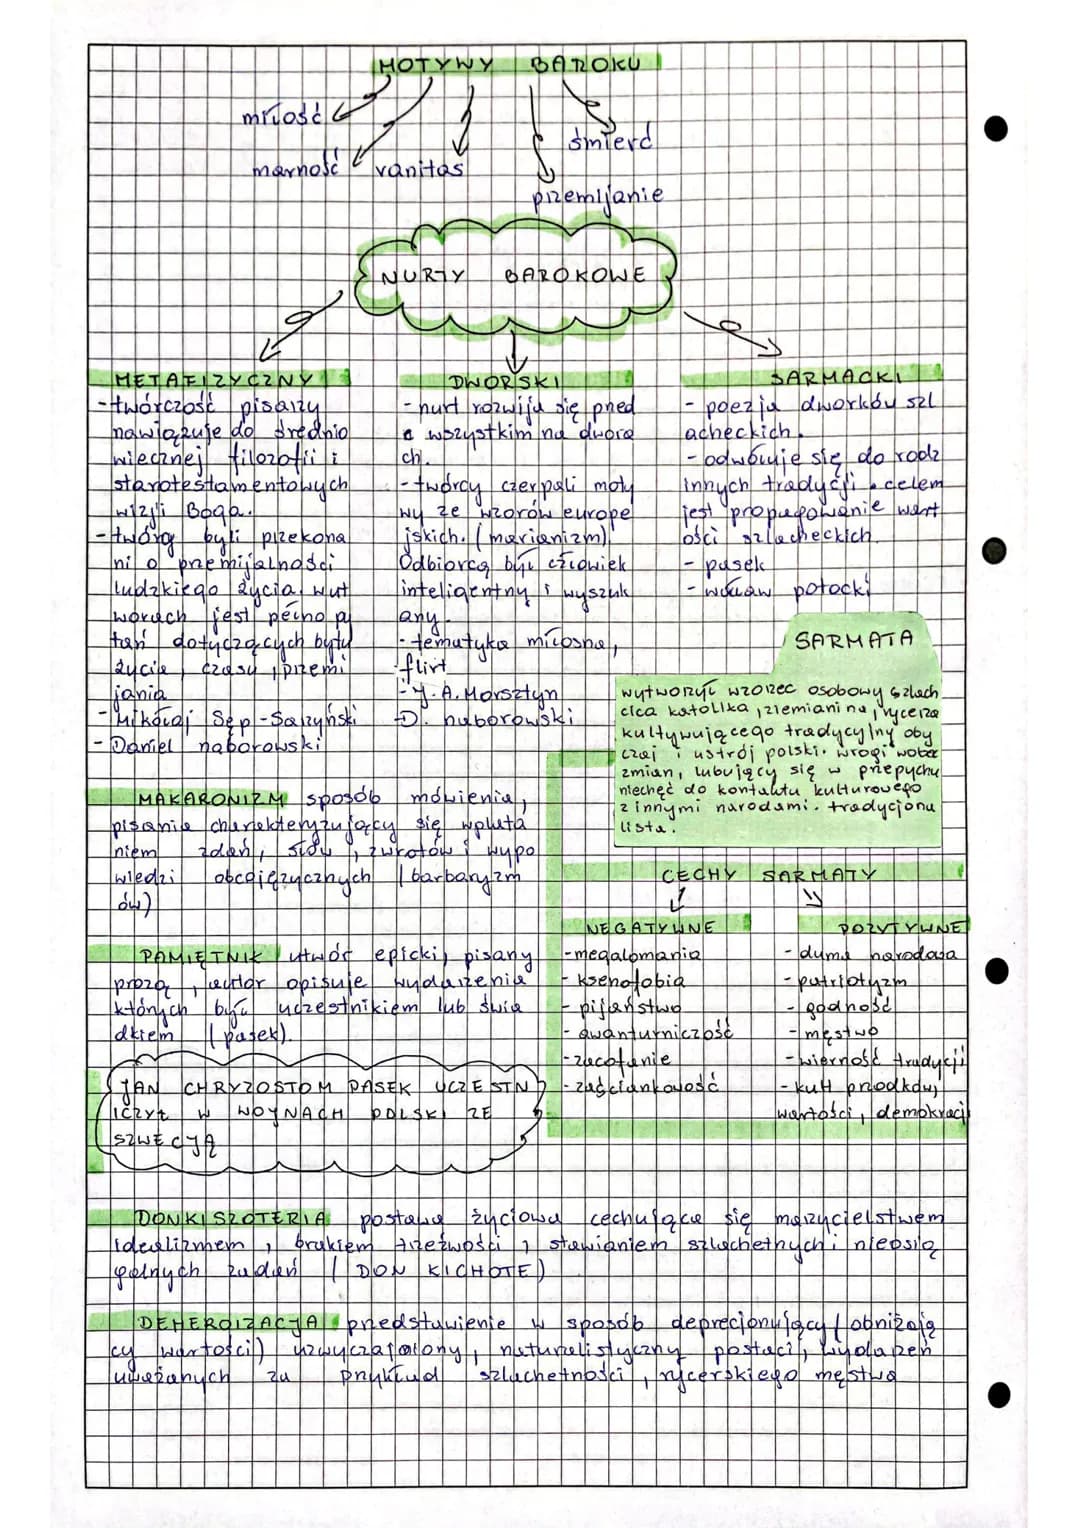 MOTYWY BAROKU
miłość
śmierć
marność vanitas
przemijanie
NURTY BAROKOWE
METAFIZYCZNY
-twórczość pisarzy
nawiązuje do średnio
wiecznej filozofii i
starotestamentowych
wizji Boga.
-twórcy byli przekona
ni o przemijalności
ludzkiego życia. w ut
worach jest pełno py
tań dotyczących bytu
życia, czasu, przemi
jania
-Mikołaj Sęp-Sarzyński
-Daniel naborowski
DWORSKI
-nurt rozwija się przed
e wszystkim na dwora
ch.
-twórcy czerpali moty
wy ze wzorów europe
jskich. (marianizm).
Odbiorcą był człowiek
inteligentny i wyszuk
any.
-tematyka miłosna,
flirt
-J. A. Morsztyn
-D. naborowski
SARMACKI
- poezja dworków szl
acheckich.
-odwołuje się do rodz
innych tradycji. celem
jest propagowanie wart
ości szlacheckich
- pasek
- wacław potocki
SARMATA
wytworzył wzorzec osobowy szlach
cica katolika, ziemianina, rycerza
kultywującego tradycyjny oby
czaj i ustrój polski. wrogi wobec
zmian, lubujący się w przepychu
niechęć do kontaktu kulturowego
z innymi narodami. tradycjona
lista.
MAKARONIZM sposób mówienia,
pisania charakteryzujący się wpluta
niem zdań, słów, zwrotów i wypo
wiedzi obcojęzycznych (barbaryzm
ów)
PAMIĘTNIK utwór epicki, pisany
prozą, autor opisuje wydarzenia
których był uczestnikiem lub świa
dkiem (pasek).
JAN CHRYZOSTOM PASEK UCZESTN
ICZYŁ W WOJNACH POLSKI ZE
SZWECJĄ
CECHY SARMATY
NEGATYWNE
-megalomania
- ksenofobia
- pijaństwo
- awanturniczość
-zacofanie
-zaściankowość
POZYTYWNE
- duma narodowa
-patriotyzm
- godność
-męstwo
-wierność tradycji
- kult przodków,
wartości, demokracji
DONKISZOTERIA postawa życiowa cechująca się marzycielstwem
idealizmem, brakiem trzeźwości, stawianiem szlachetnych i nieosią
galnych zadań (DON KICHOTE)
DEHEROIZACJA przedstawienie w sposób deprecjonujący (obniżają
cy wartości) uzwyczajniony, naturalistyczny postaci, wydarzeń
uważanych za przykład szlachetności, rycerskiego męstwa